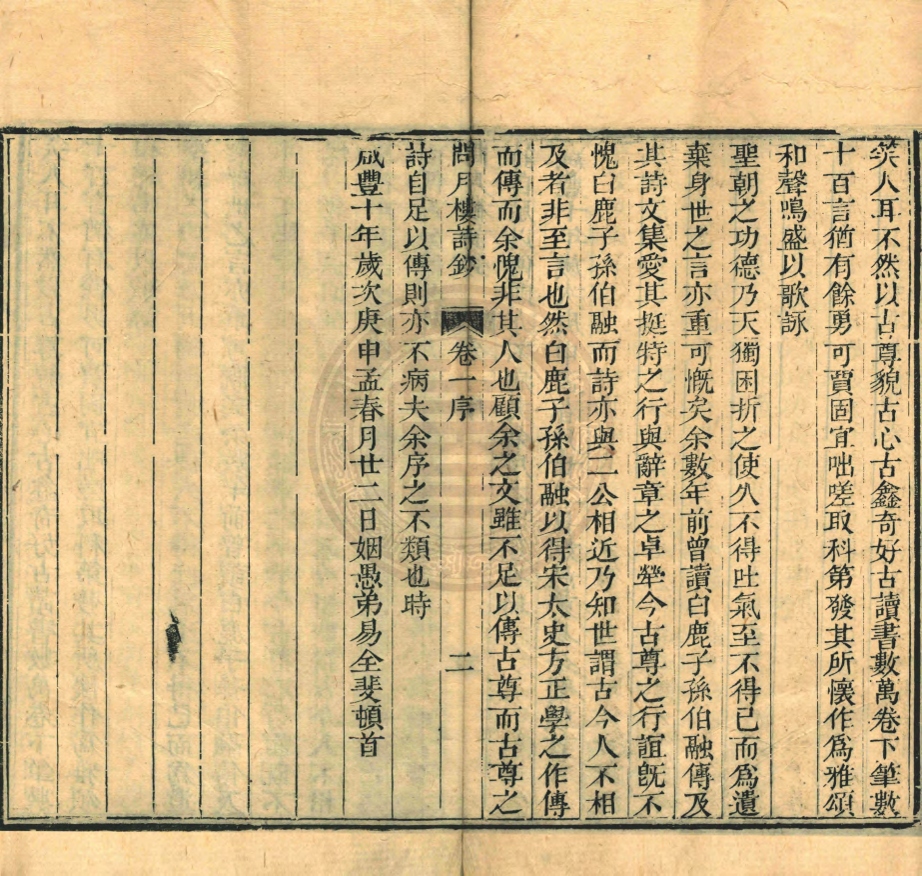 笑人耳不然以古尊貌古心古鑫奇好古讀書數萬卷下筆數
十百言猶有餘勇可賈固宜咄嗟取科第發其所懷作爲雅頌
和聲鳴盛以歌詠
聖朝之功德乃天獨困折之使久不得吐氣至不得已而爲遺
棄身世之言亦重可慨矣余數年前曾讀白鹿子孫伯融傳及
其詩文集愛其挺特之行與辭章之卓犖今古尊之行誼旣不
愧白鹿子孫伯融而詩亦與二公相近乃知世謂古今人不相
及者非至言也然白鹿子孫伯融以得宋太史方正學之作傳
而傳而余愧非其人也顧余之文雖不足以傳古尊而古尊之
問月樓詩鈔 卷一序 二
詩自足以傳則亦不病夫余序之不類也時
咸豐十年歲次庚申孟春月廿二日姻愚弟易全斐頓首